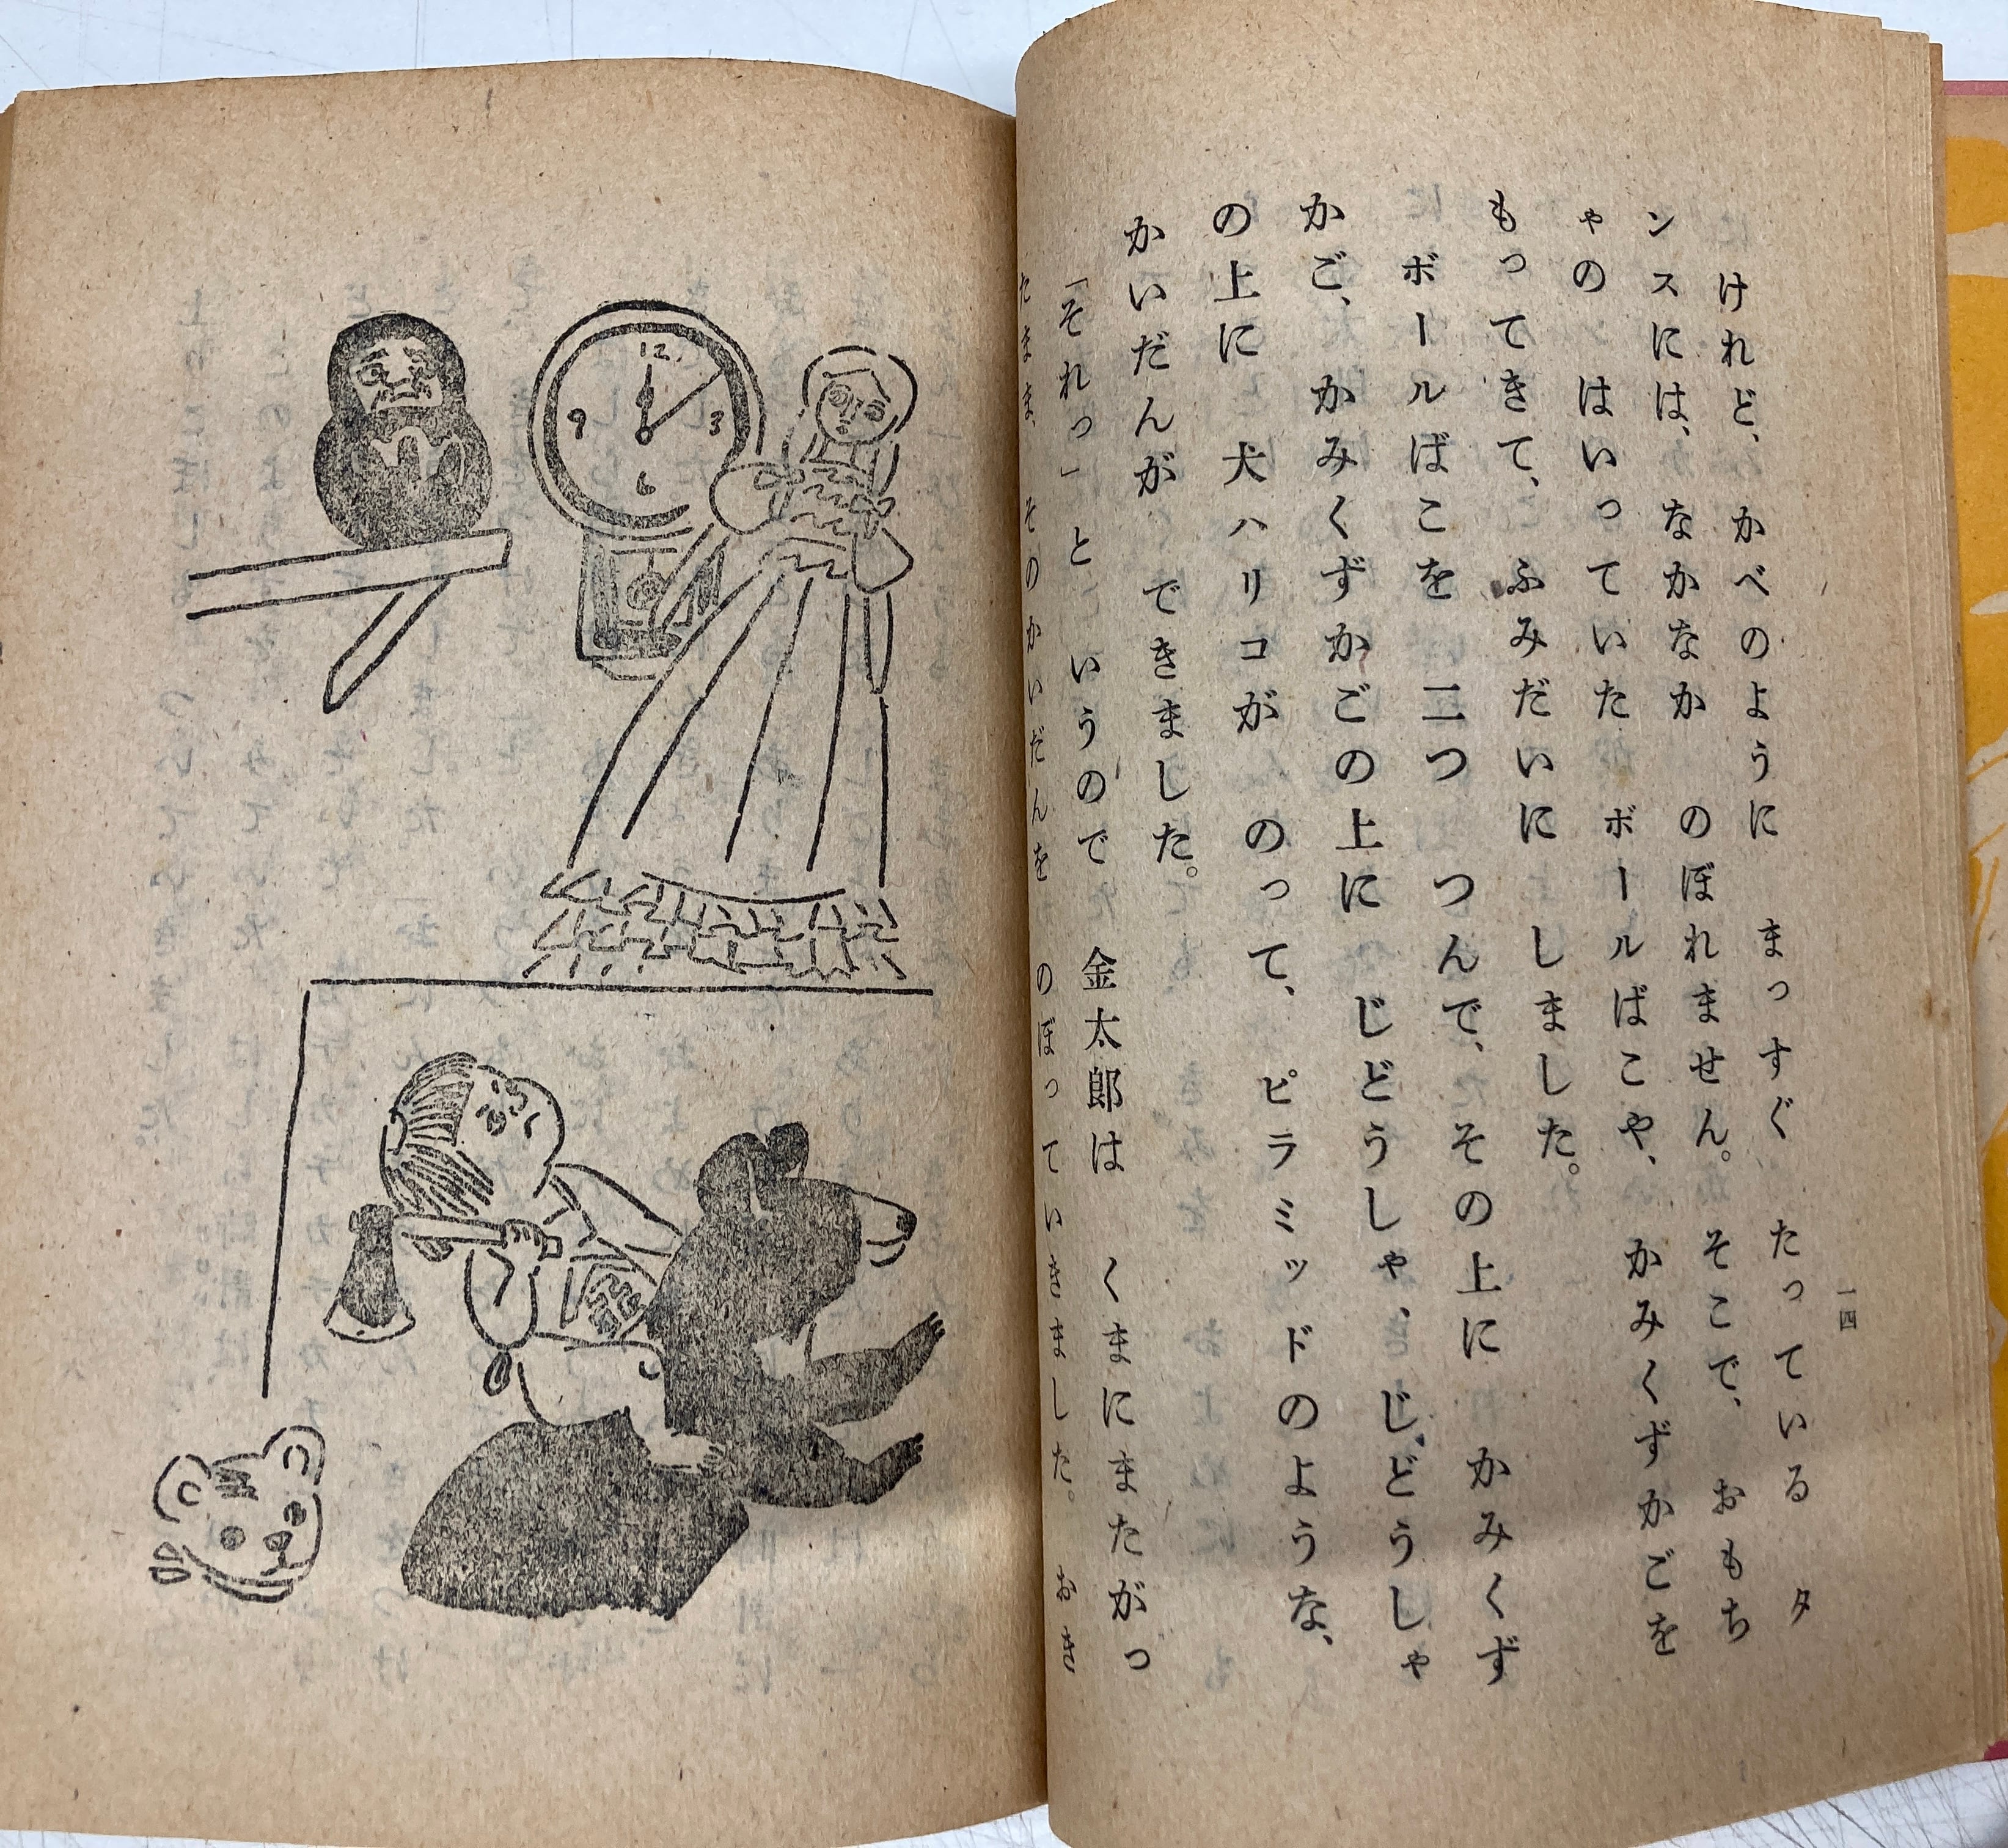 一四
けれど、かべのように まっすぐ たっている タ
ンスには、なかなか のぼれません。そこで、おもち
ゃの はいっていた ボールばこや、かみくずかごを
もってきて、ふみだいに しました。
ボールばこを 二つ つんで、その上に かみくず
かご、かみくずかごの上に じどうしゃ、じどうしゃ
の上に 犬ハリコが のって、ピラミッドのような、
かいだんが できました。
「それっ」と いうので 金太郎は くまにまたがっ
たまま、そのかいだんを のぼっていきました。おき
12
3
6
9
金